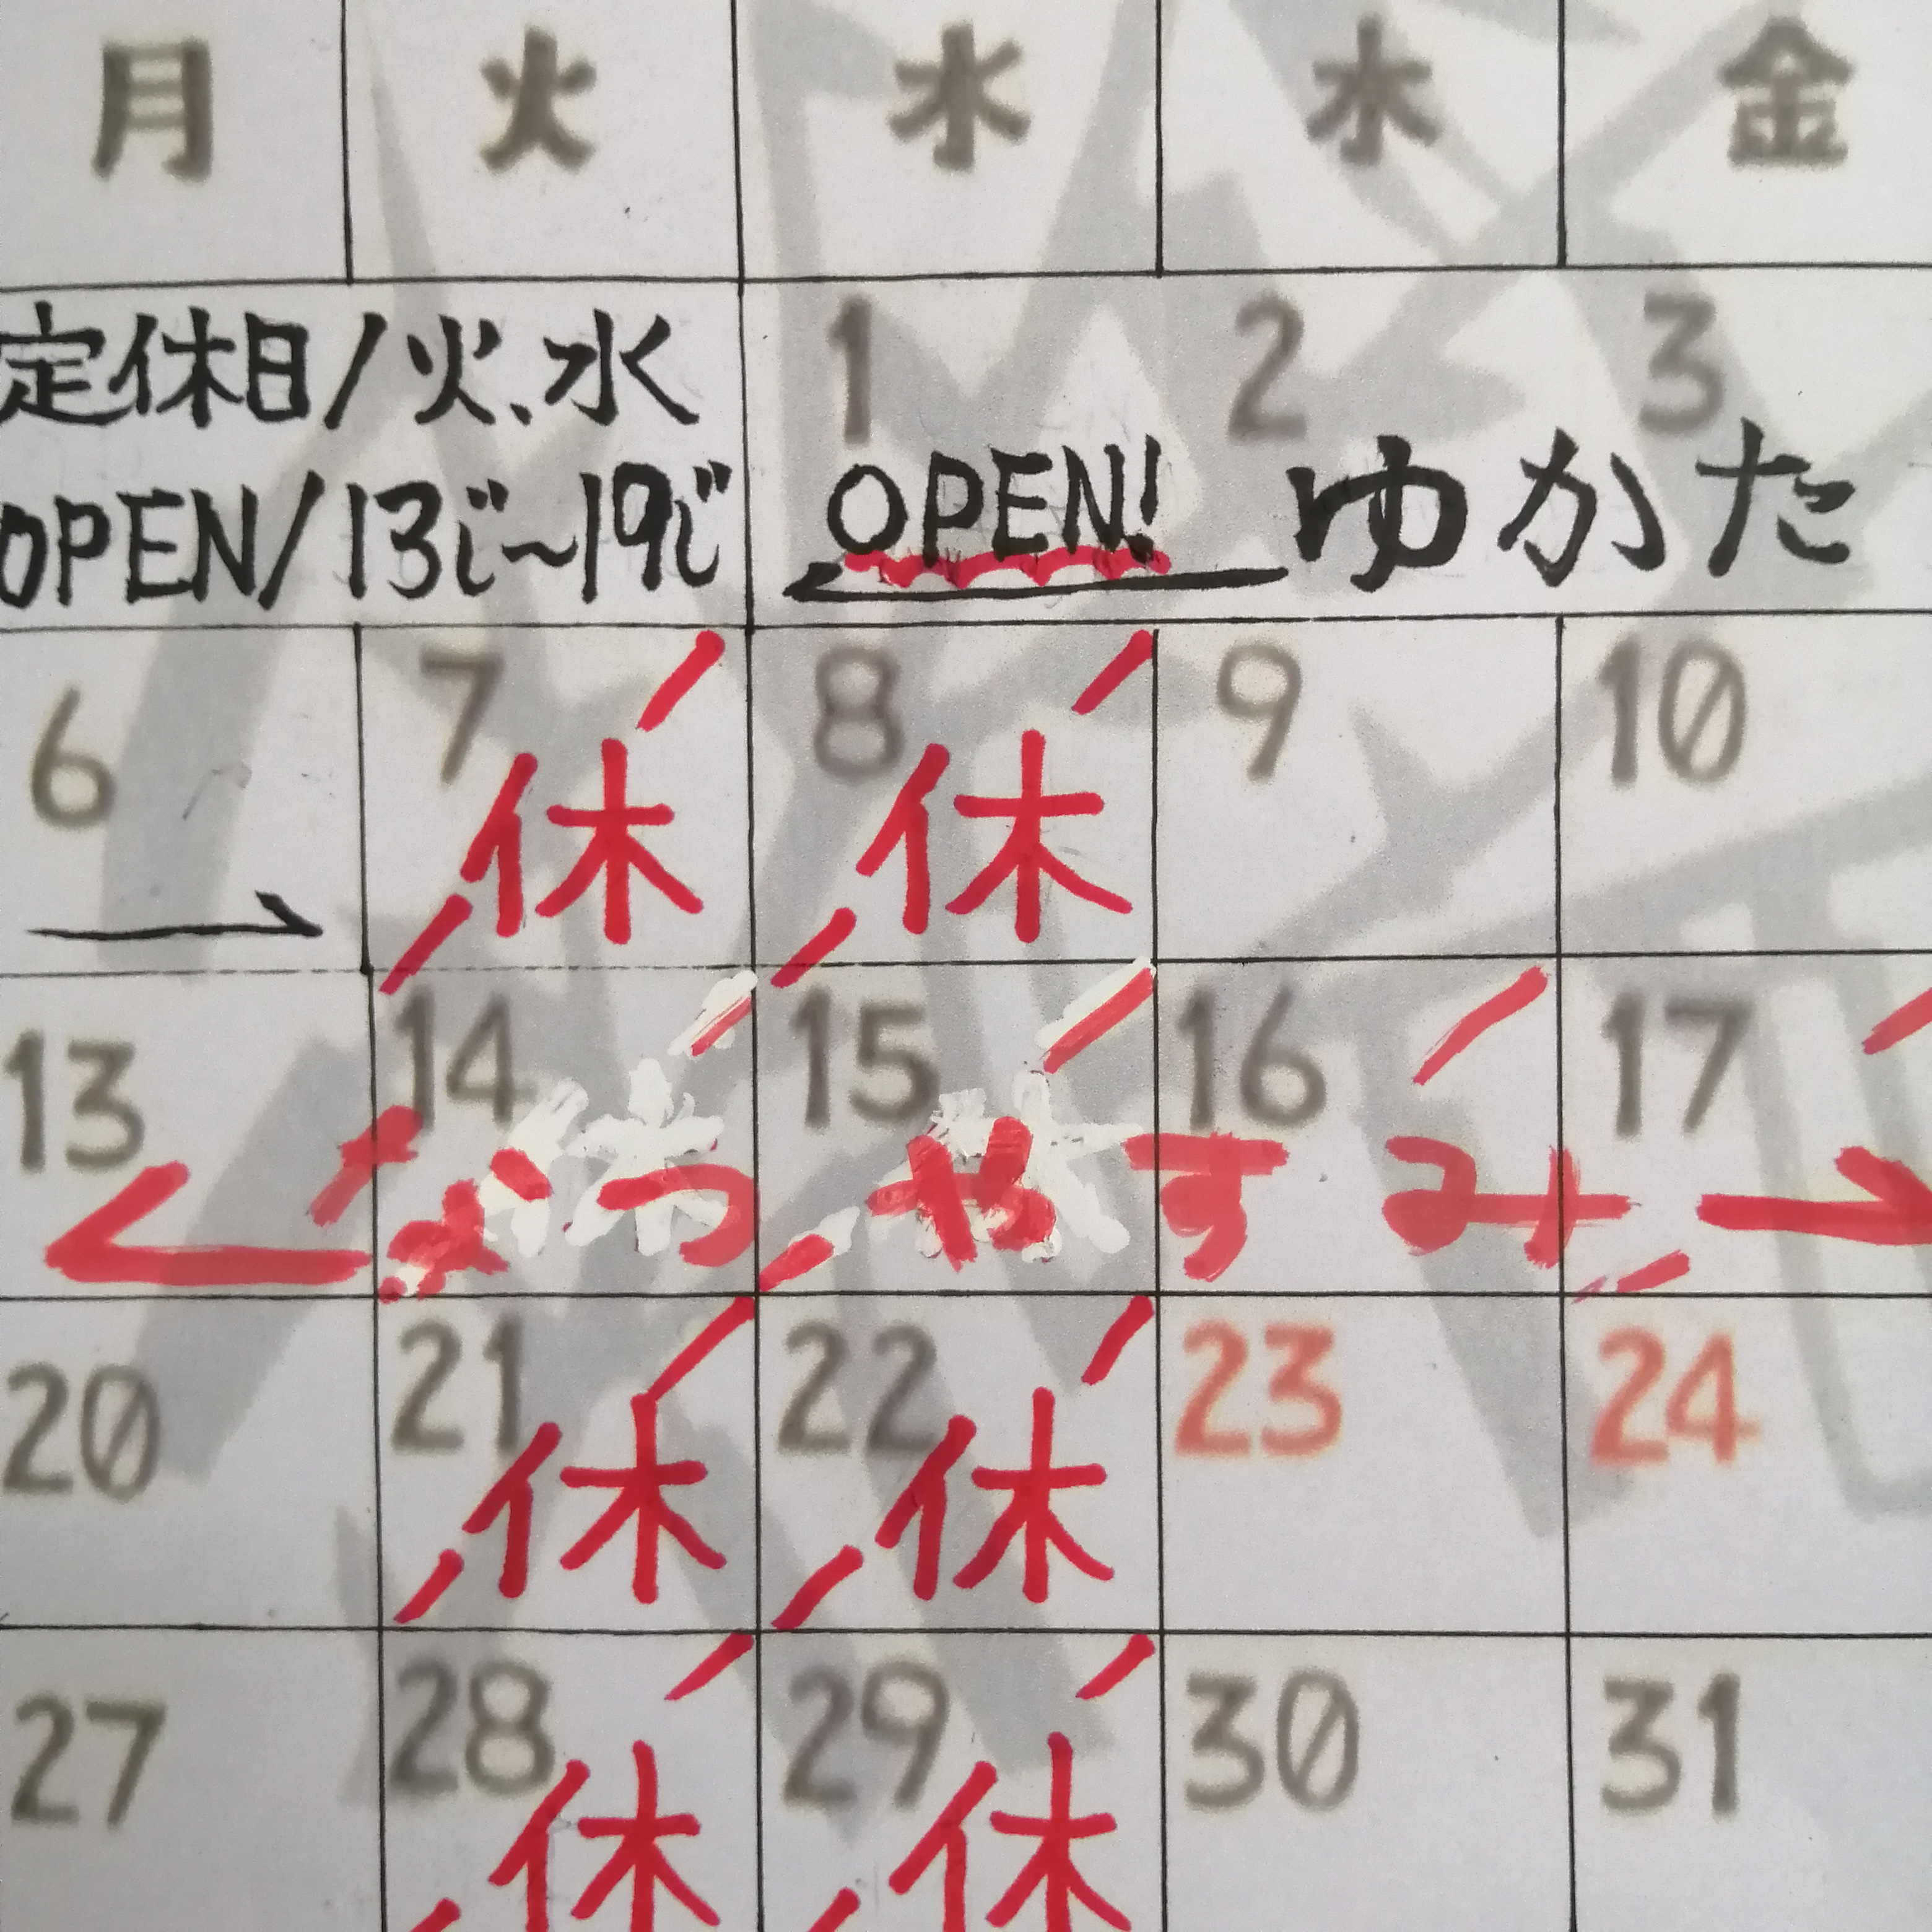 月 火 水 木 金
定休日/火、水
OPEN/13じ~19じ
1 2 3
OPEN! ゆかた
6 7 8 9 10
休 休
13 14 15 16 17
なつ やすみ
20 21 22 23 24
休 休
27 28 29 30 31
休 休